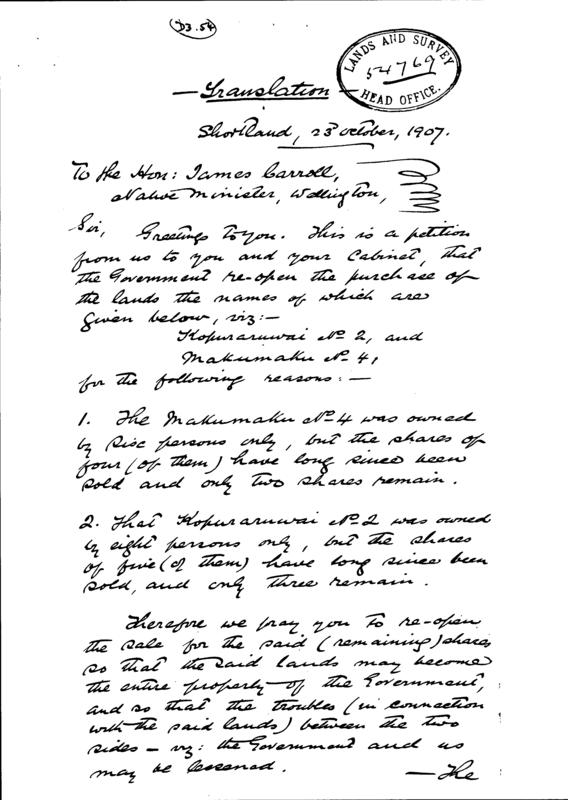 (D3.54)
LANDS AND SURVEY
54769
HEAD OFFICE.
— Translation —
Shortland, 23rd October, 1907.
To the Hon: James Carroll,
Native Minister, Wellington,
Sir, Greetings to you. This is a petition
from us to you and your Cabinet, that
the Government re-open the purchase of
the lands the names of which are
given below, viz:—
Kopuraruwai No 2, and
Makumaku No 4,
for the following reasons:—
1. The Makumaku No 4 was owned
by six persons only, but the shares of
four (of them) have long since been
sold and only two shares remain.
2. That Kopuraruwai No 2 was owned
by eight persons only, but the shares
of five (of them) have long since been
sold, and only three remain.
Therefore we pray you to re-open
the sale for the said (remaining) shares
so that the said lands may become
the entire property of the Government,
and so that the troubles (in connection
with the said lands) between the two
sides – viz: the Government and us
may be lessened. — The